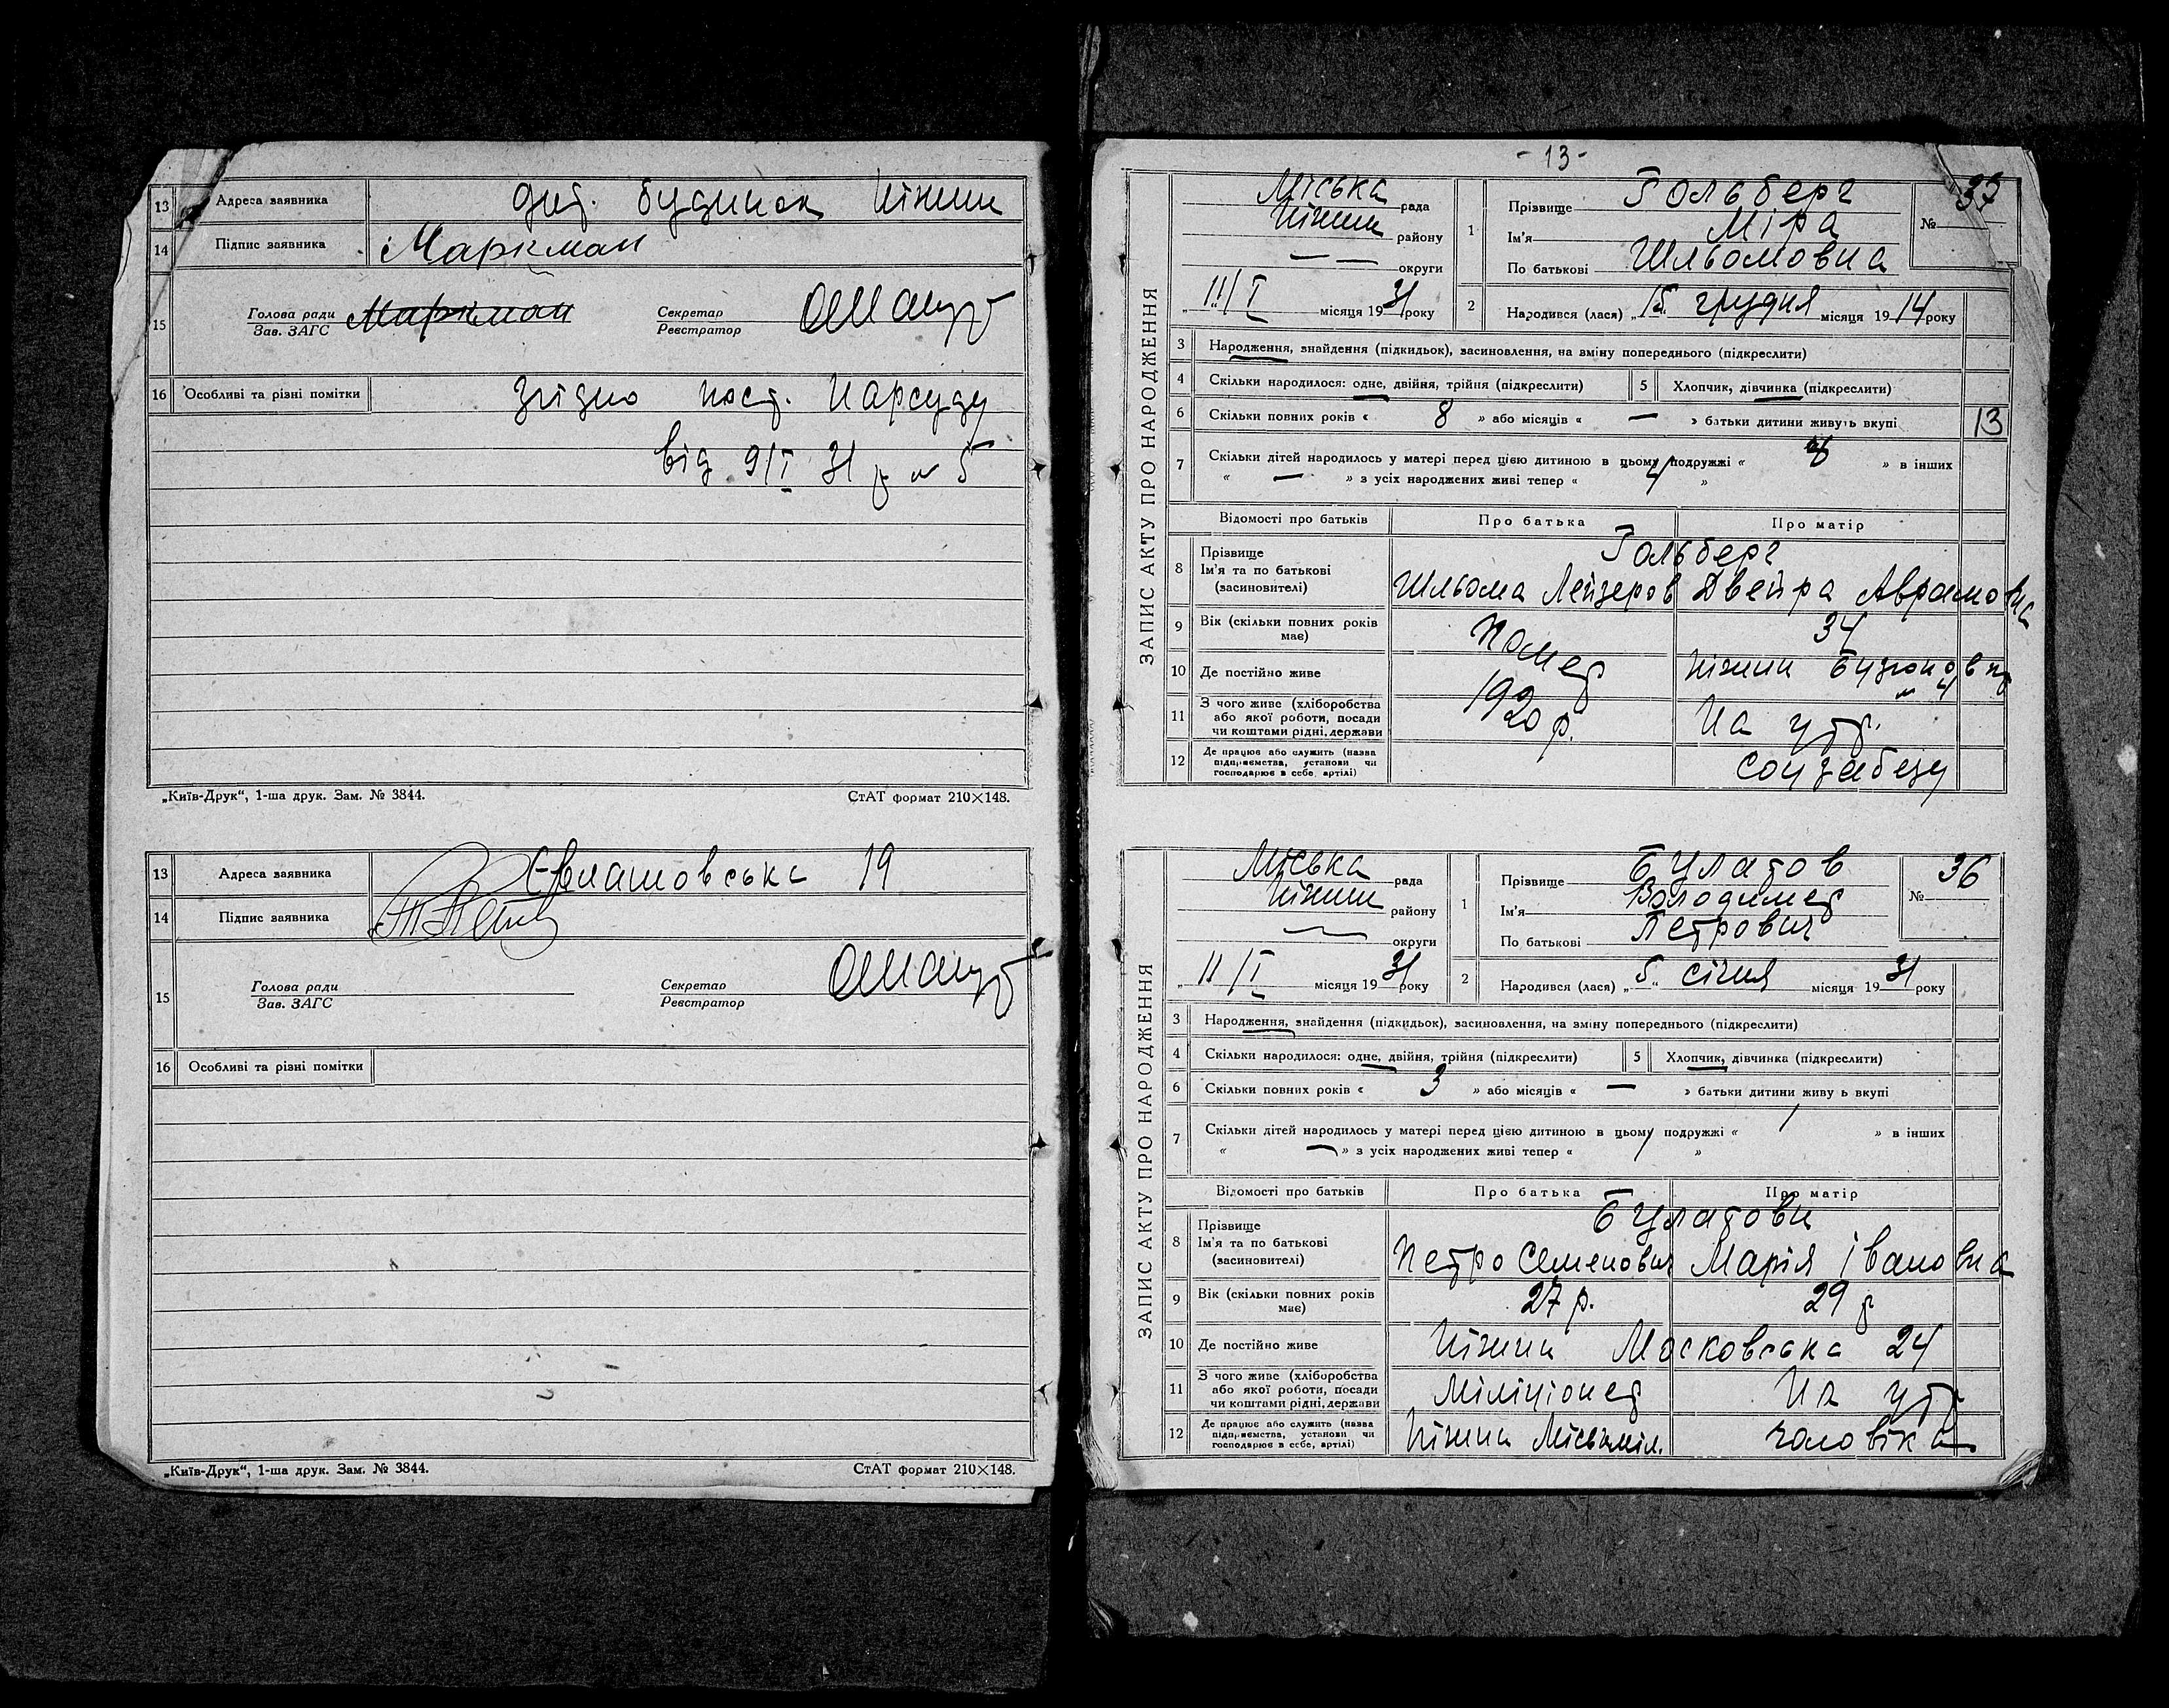 13 Адреса заявника дит. будинок Ніжин
14 Підпис заявника Маркман
15 Голова ради Маркман Секретар
Зав. ЗАГС Реєстратор
16 Особливі та різні помітки згідно пост. Нарсуду
від 9/I 31 р № 5
„Київ-Друк“, 1-ша друк. Зам. № 3844. СтАТ формат 210×148.
13 Адреса заявника 19
14 Підпис заявника
15 Голова ради Секретар
Зав. ЗАГС Реєстратор
16 Особливі та різні помітки
„Київ-Друк“, 1-ша друк. Зам. № 3844. СтАТ формат 210×148.
- 13 -
ЗАПИС АКТУ ПРО НАРОДЖЕННЯ
Міська рада
Ніжин району
— — округи
„11/I місяця 1931 року
1 Прізвище Гольберг
Ім'я Міра
По батькові Шльомовна
№ 35
2 Народився (лася) „15“ грудня місяця 1914 року
3 Народження, знайдення (підкидьок), засиновлення, на зміну попереднього (підкреслити)
4 Скільки народилося: одне, двійня, трійня (підкреслити) 5 Хлопчик, дівчинка (підкреслити)
6 Скільки повних років « 8 » або місяців « — » батьки дитини живуть вкупі 13
7 Скільки дітей народилось у матері перед цією дитиною в цьому подружжі « » в інших
« — » з усіх народжених живі тепер « 4 »
Відомості про батьків Про батька Про матір
8 Прізвище Гольберг
Ім'я та по батькові Шльома Лейзеров Двейра Аврамовна
(засиновителі)
9 Вік (скільки повних років має) Помер 34
10 Де постійно живе 1920 р. Ніжин
11 З чого живе (хліборобства або якої роботи, посади чи коштами рідні, держави На утр.
12 Де працює або служить (назва підприємства, установи чи господарює в себе, артілі) Соцзабезу
ЗАПИС АКТУ ПРО НАРОДЖЕННЯ
Міська рада
Ніжин району
— округи
„11/I місяця 1931 року
1 Прізвище Булатов
Ім'я Володимер
По батькові Петрович
№ 36
2 Народився (лася) „5“ січня місяця 1931 року
3 Народження, знайдення (підкидьок), засиновлення, на зміну попереднього (підкреслити)
4 Скільки народилося: одне, двійня, трійня (підкреслити) 5 Хлопчик, дівчинка (підкреслити)
6 Скільки повних років « 3 » або місяців « — » батьки дитини живу ь вкупі
7 Скільки дітей народилось у матері перед цією дитиною в цьому подружжі « 1 » в інших
« — » з усіх народжених живі тепер « 1 »
Відомості про батьків Про батька Про матір
8 Прізвище Булатови
Ім'я та по батькові Петро Семенович Марія Івановна
(засиновителі)
9 Вік (скільки повних років має) 27 р. 29 р
10 Де постійно живе Ніжин Московська 24
11 З чого живе (хліборобства або якої роботи, посади чи коштами рідні, держави Міліціонер На утр
12 Де працює або служить (назва підприємства, установи чи господарює в себе, артілі) Ніжин Міськміл. чоловіка